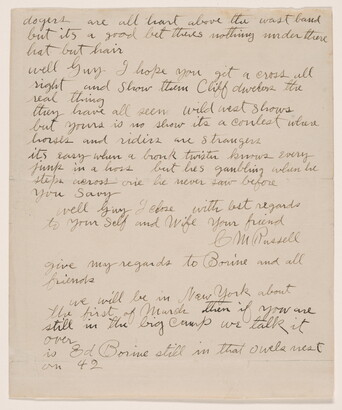 dogers are all hart above the wast band
but its a good bet theres nothing under there
hat but hair
well Guy I hope you get a cross all
right and show them Cliff dwelers the
real thing
they have all seen wild west shows
but yours is no show its a contest where
horses and riders are strangers
its easy when a bronk twister knows every
junk in a hors but hes gambling when he
steps across one he never saw before
you Savy
well Guy I close with best regards
to Your Self and Wife Your friend
C M Russell
give my regards to Borine and all
friends
we will be in New York about
the first of March then if you are
still in the big Camp we talk it
over
is Ed Borine still in that owels nest
on 42